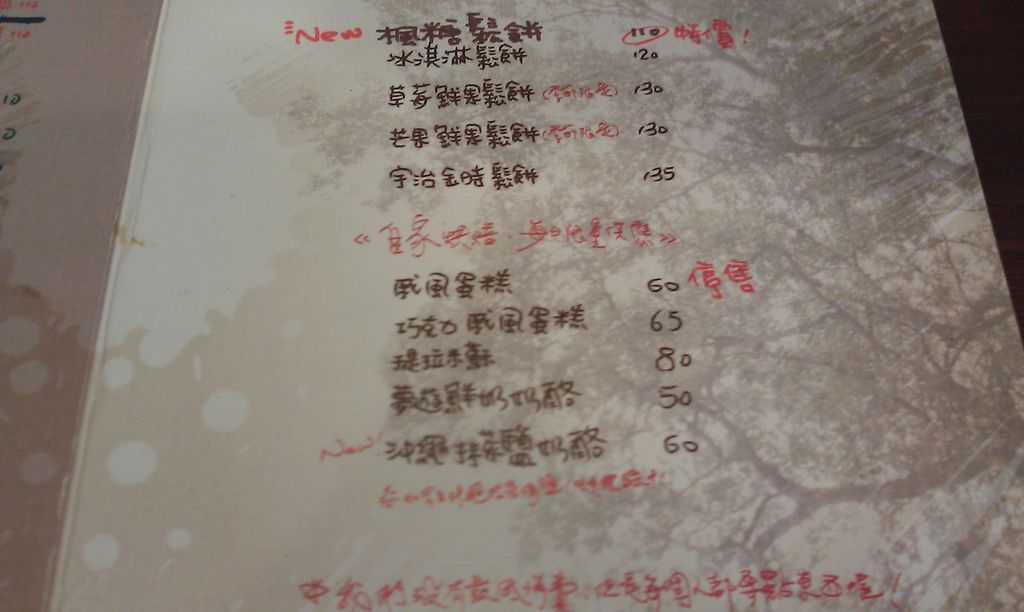 110
110
10
0
"New 楓糖鬆餅 110 特價!
冰淇淋鬆餅 120
草莓鮮果鬆餅(季節限定) 130
芒果鮮果鬆餅(季節限定) 130
宇治金時鬆餅 135
《自家烘焙.每日限量供應》
戚風蛋糕 60 停售
巧克力戚風蛋糕 65
提拉米蘇 80
夢遊鮮奶奶酪 50
New! 沖繩抹茶鹽奶酪 60